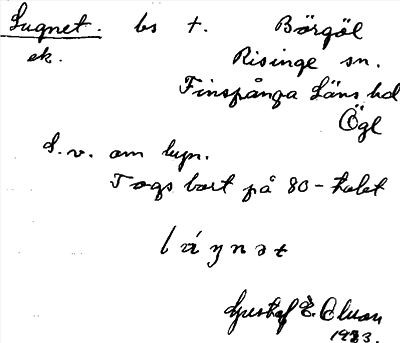 Lugnet. bs t. Börgöl
ek. Risinge sn.
Finspånga Läns hd
Ögl
S.v. om byn.
Togs bort på 80-talet
Gustaf E. Olsson